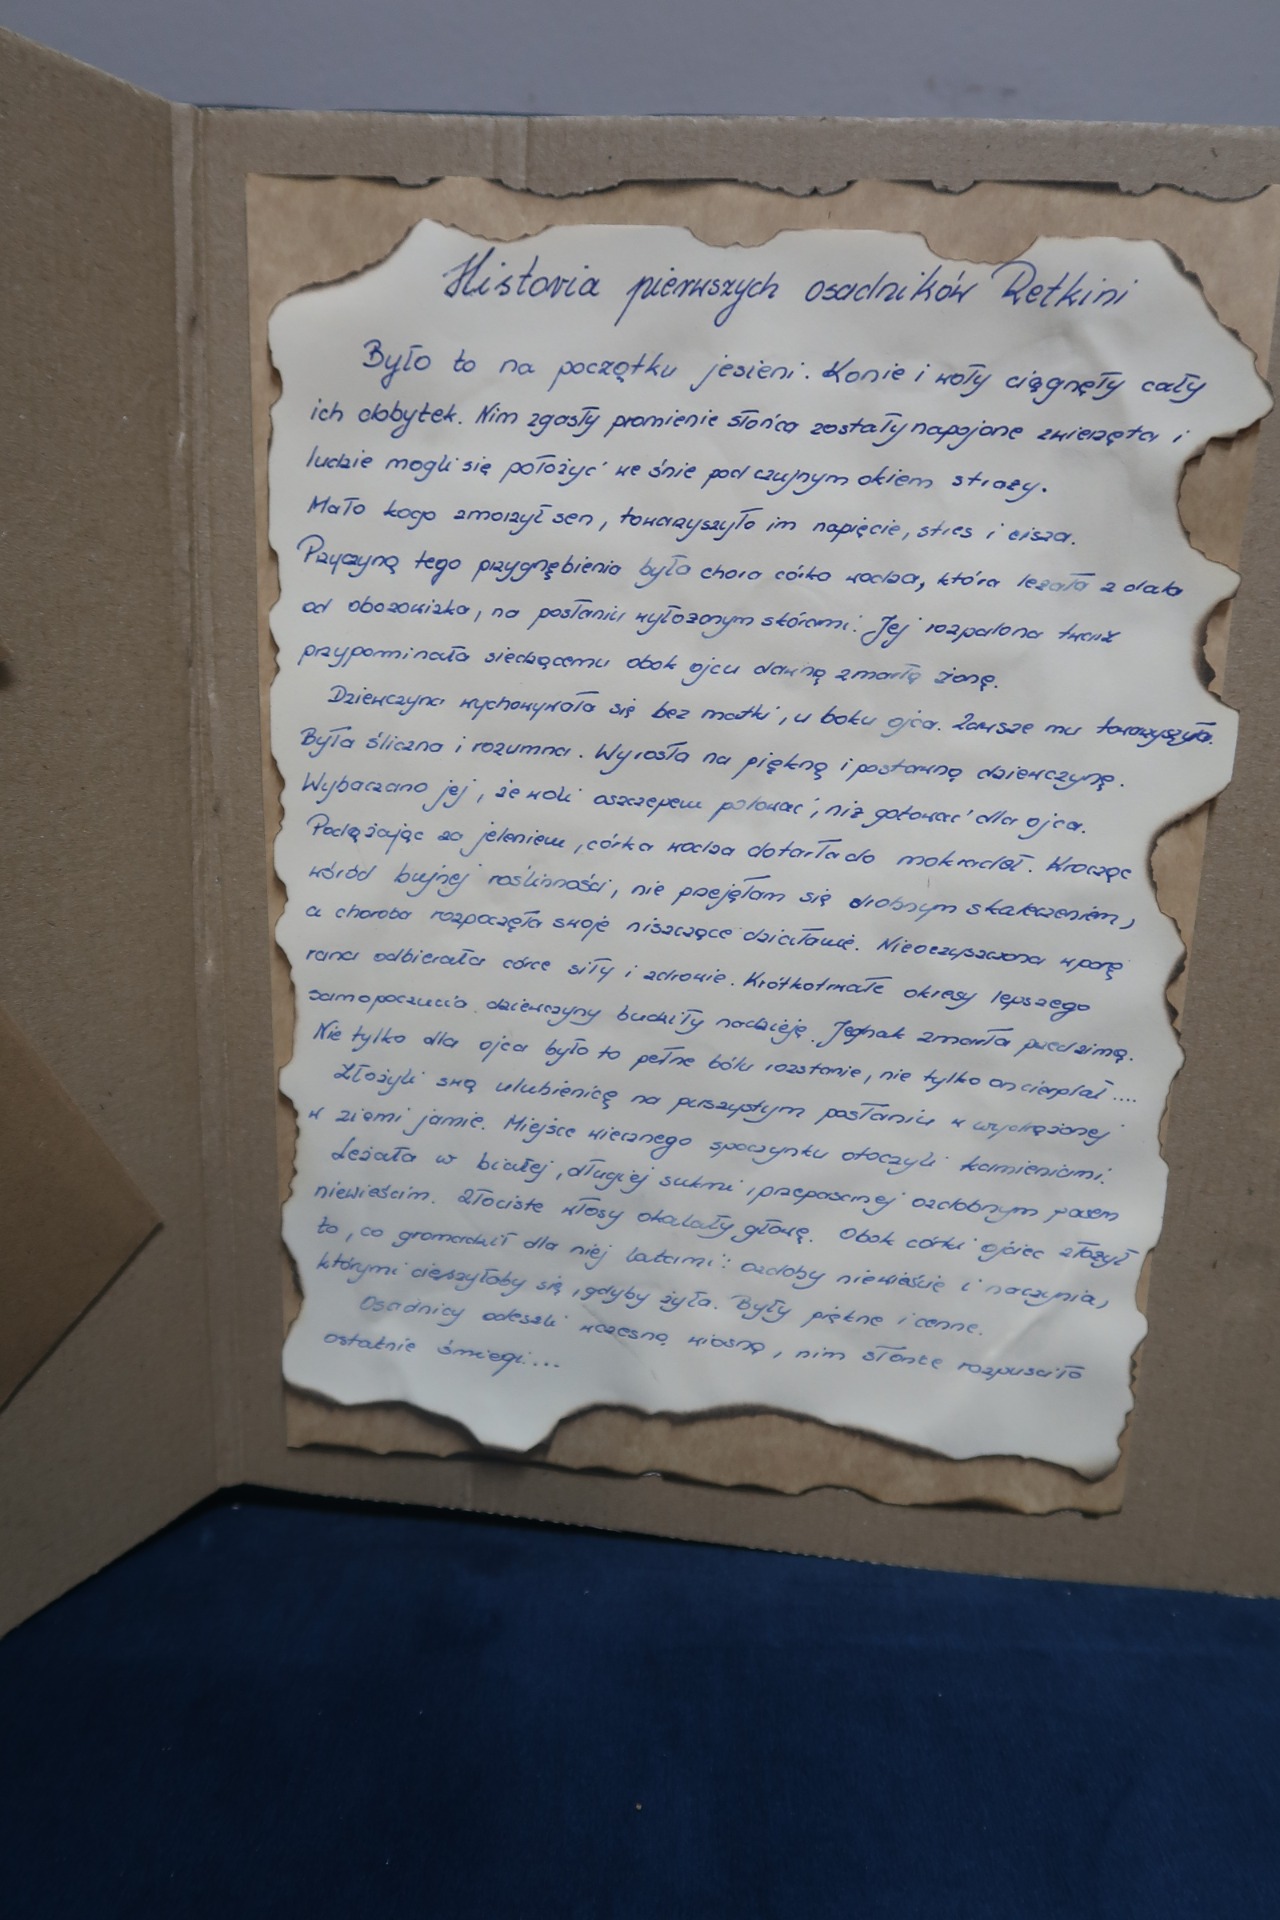 Historia pierwszych osadników Retkini
Było to na początku jesieni. Konie i woły ciągnęły cały
ich dobytek. Nim zgasły promienie słońca zostały napojone zwierzęta i
ludzie mogli się położyć we śnie pod czujnym okiem straży.
Mało kogo zmorzył sen, towarzyszyło im napięcie, stres i cisza.
Przyczyną tego przygnębienia była chora córka wodza, która leżała z dala
od obozowiska, na posłaniu wyłożonym skórami. Jej rozpalona twarz
przypominała siedzącemu obok ojcu dawną zmarłą żonę.
Dziewczyna wychowywała się bez matki, u boku ojca. Zawsze mu towarzyszyła.
Była śliczna i rozumna. Wyrosła na piękną i postawną dziewczynę.
Wybaczano jej, że woli oszczepem polować, niż gotować dla ojca.
Podążając za jeleniem, córka wodza dotarła do mokradeł. Krocząc
wśród bujnej roślinności, nie przejęłam się drobnym skaleczeniem,
a choroba rozpoczęła swoje niszczące działanie. Nieoczyszczona w porę
rana odbierała córce siły i zdrowie. Krótkotrwałe okresy lepszego
samopoczucia dziewczyny budziły nadzieję. Jednak zmarła przed zimą.
Nie tylko dla ojca było to pełne bólu rozstanie, nie tylko on cierpiał....
Złożyli swą ulubienicę na puszystym posłaniu w wydrążonej
w ziemi jamie. Miejsce wiecznego spoczynku otoczyli kamieniami.
Leżała w białej, długiej sukni, przepasanej ozdobnym pasem
niewieścim. Złociste włosy okalały głowę. Obok córki ojciec złożył
to, co gromadził dla niej latami: ozdoby niewieście i naczynia,
którymi cieszyłaby się, gdyby żyła. Były piękne i cenne.
Osadnicy odeszli wczesną wiosną, nim słońce rozpuściło
ostatnie śniegi...